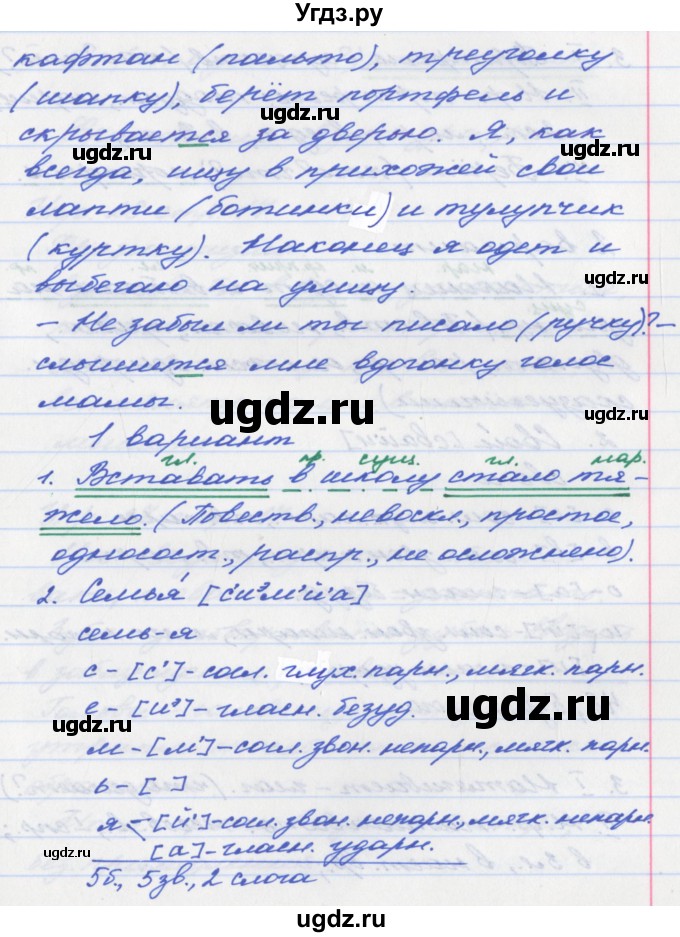 Угдз.ру
кафтан (пальто), треуголку
(шапку), берёт портфель и
скрывается за дверью. Я, как
ugdz.ru ugdz.ru
всегда, ищу в прихожей свои
лапти (ботинки) и тулупчик
(куртку). Наконец я одет и
выбегаю на улицу.
- Не забыл ли ты писало (ручку)? -
слышится мне вдогонку голос
мамы.
ugdz.ru ugdz.ru
1 вариант
гл. пр. сущ. гл. нар.
1. Вставать в школу стало тя-
жело. (Повеств., невоскл., простое,
односост., распр., не осложнено).
2. Семья́ [с'иэм'й'а]
семь-я
с - [с'] - согл. глух. парн., мягк. парн.
е - [иэ] - гласн. безуд.
ugdz.ru ugdz.ru
м - [м'] - согл. звон. непарн., мягк. парн.
ь - [ ]
я - [й'] - согл. звон. непарн., мягк. непарн.
[а] - гласн. ударн.
ugdz.ru ugdz.ru
5б., 5зв., 2 слога
ugdz.ru